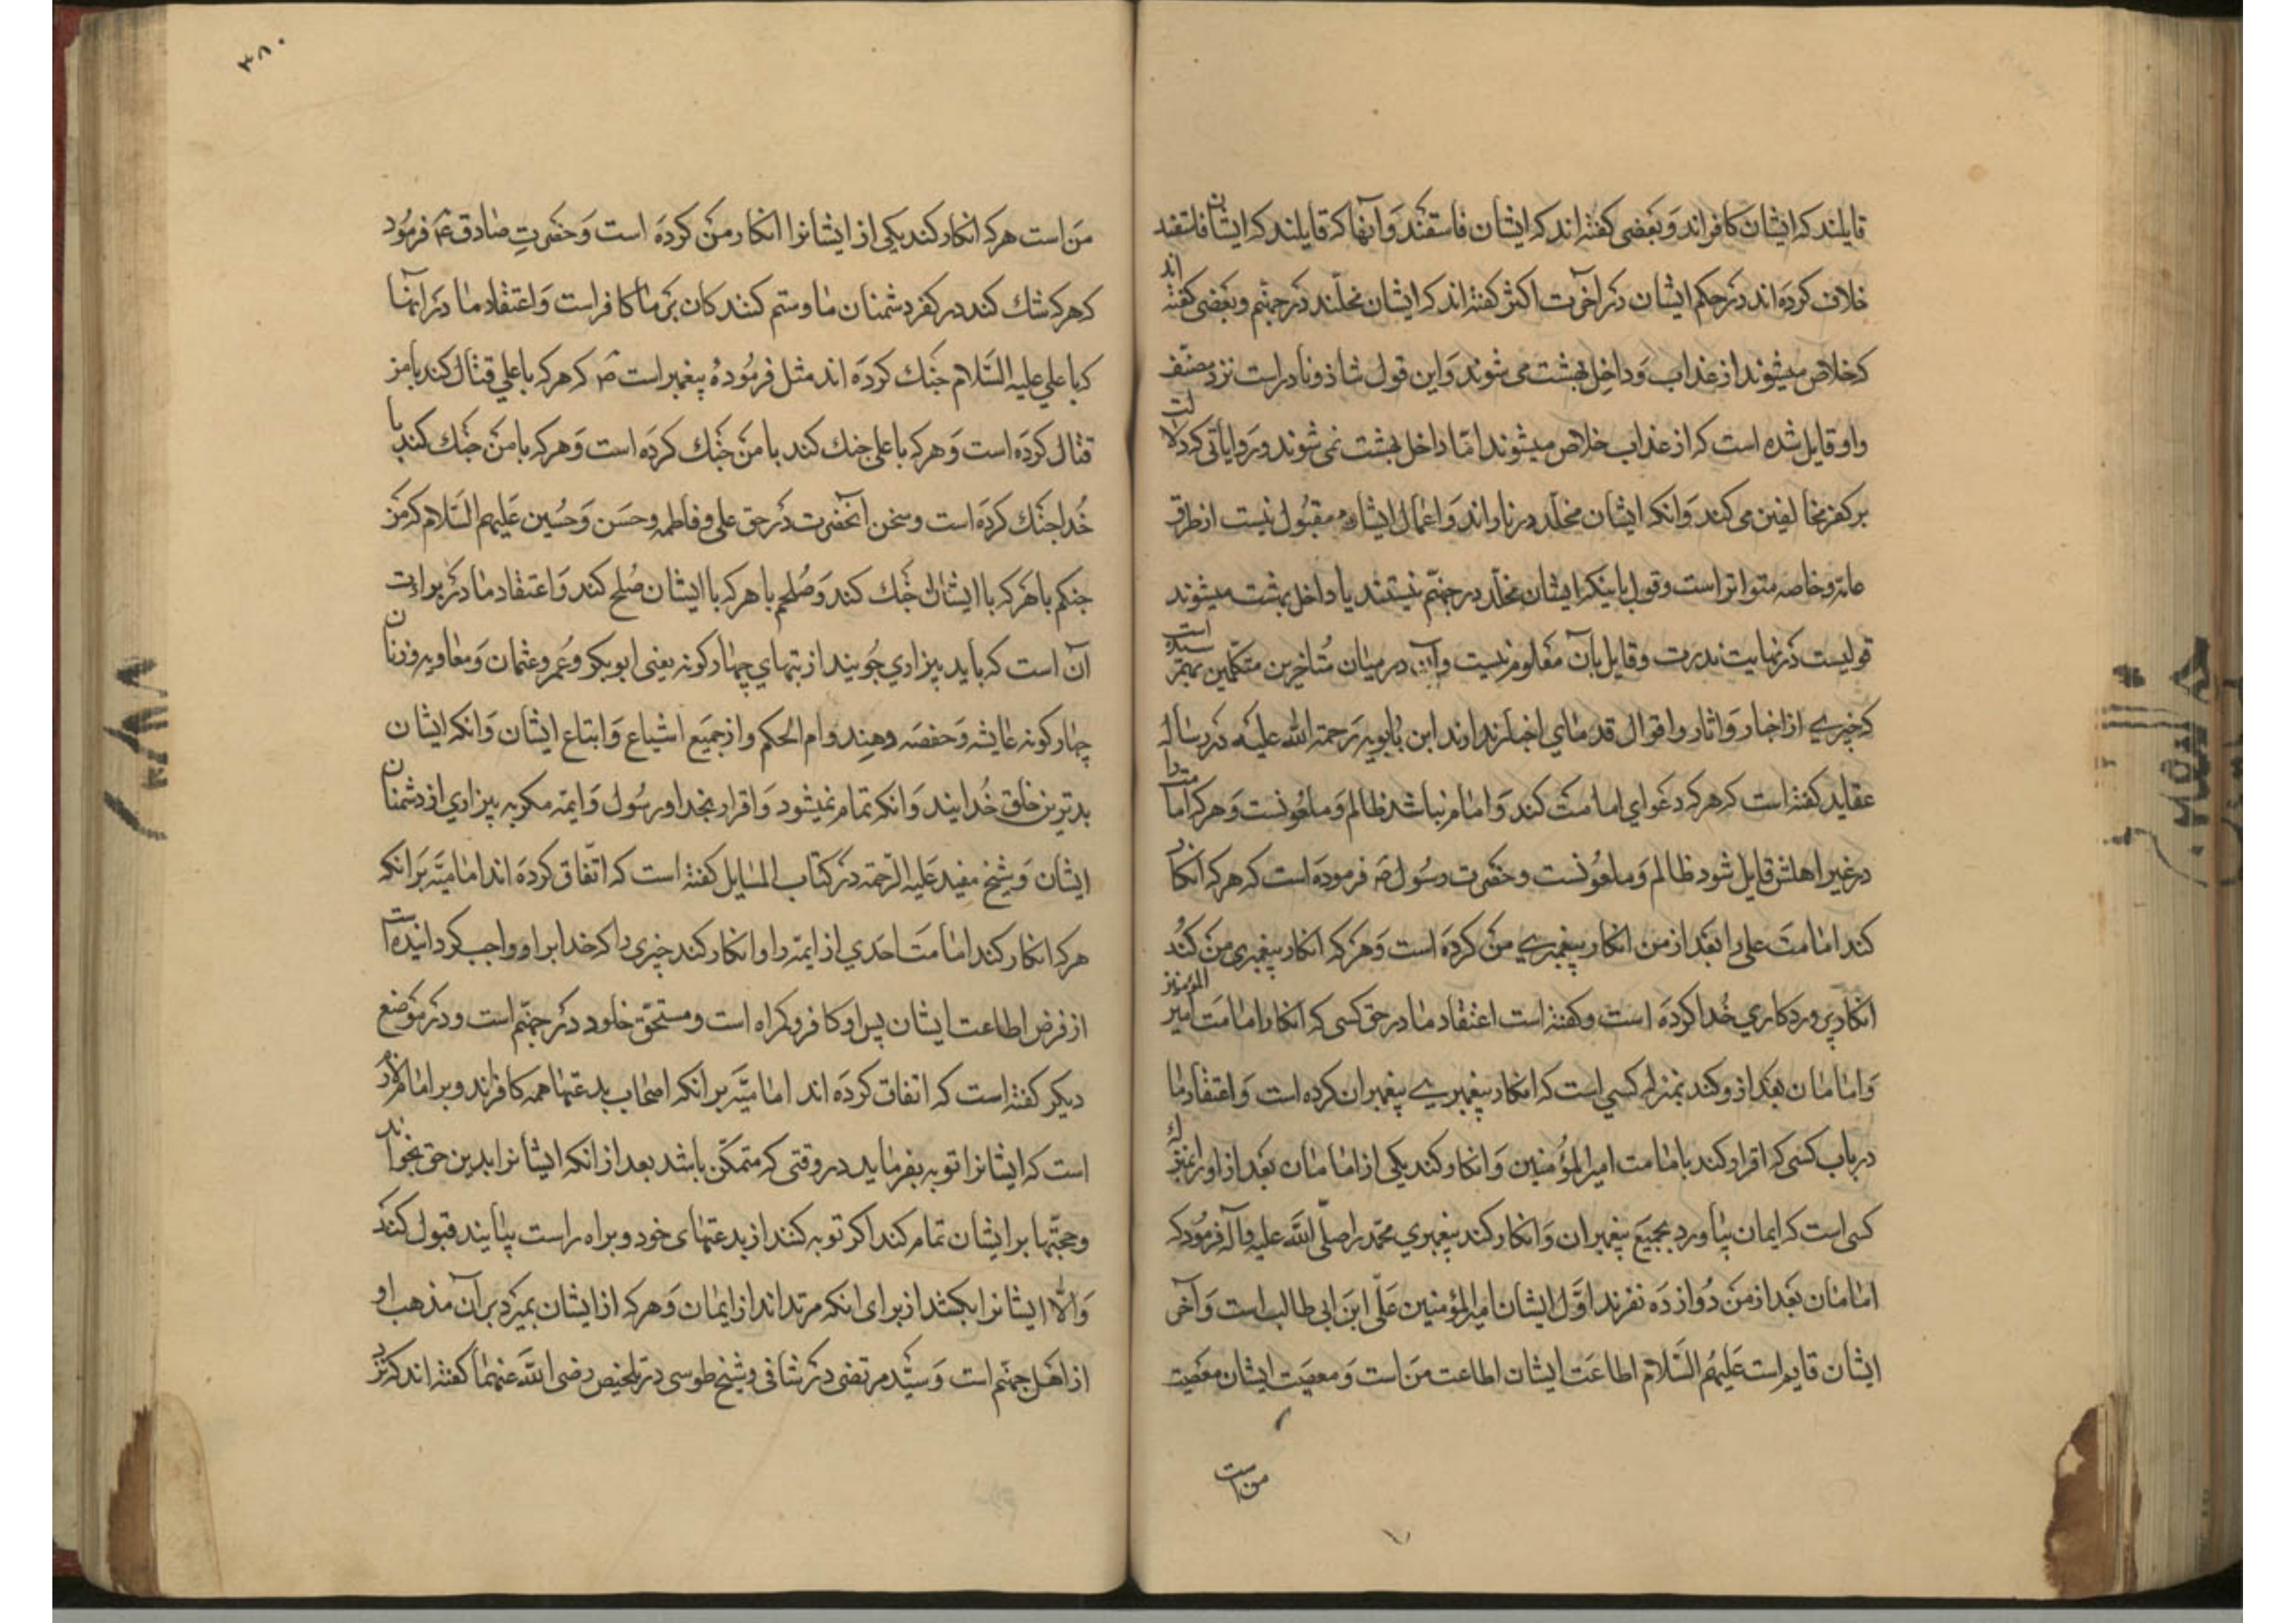 قایلند که ایشان کافراند و بعضی گفته اند که ایشان فاسقند و آنها که قایلند که ایشان فاسقند
خلاف کرده اند در حکم ایشان در آخرت اکثر گفته اند که ایشان مخلّدند در جهنّم و بعضی گفته اند
که خلاص میشوند از عذاب و داخل بهشت می شوند و این قول شاذ و نادر است نزد مصنّف
و او قایل شده است که از عذاب خلاص میشوند امّا داخل بهشت نمی شوند و روایاتی که دلالت
بر کفر مخالفین می کند و انکه ایشان مخلّد در نار اند و اعمال ایشان مقبول نیست از طرق
عامّه و خاصه متواتر است و قول باینکه ایشان مخلّد در جهنّم نیستند یا داخل بهشت میشوند
قولیست در نهایت ندرت و قایل بآن معلوم نیست و این در میان متأخرین متکلّمین بهم رسیده است
که خبری از اخبار و اثار و اقوال قدمای اخبار ندارند ابن بابویه رحمة الله علیه در رساله
عقاید گفته است که هر که دعوای امامت کند و امام نباشد ظالم و ملعونست و هر که امامت را
در غیر اهلش قایل شود ظالم و ملعونست و حضرت رسول ص فرموده است که هر که انکار
کند امامت علی را بعد از من انکار پیغمبری من کرده است و هر که انکار پیغمبری من کند
انکار پروردکاری خدا کرده است و گفته است اعتقاد ما در حق کسی که انکار امامت امیر المؤمنین
و امامان بعد از و کند بمنزله کسی است که انکار پیغمبری پیغمبران کرده است و اعتقاد ما
در باب کسی که اقرار کند بامامت امیر المؤمنین و انکار کند یکی از امامان بعد از او را بمنزله
کسی است که ایمان بیاورد بجمیع پیغمبران و انکار کند پیغمبری محمد را صلّی الله علیه و آله فرمود که
امامان بعد از من دوازده نفرند اوّل ایشان امیر المؤمنین علی ابن ابی طالب است و آخر
ایشان قایم است علیهم السّلام اطاعت ایشان اطاعت من است و معصیت ایشان معصیت
من است
۳۸۰
من است هر که انکار کند یکی از ایشانرا انکار من کرده است و حضرت صادق ع فرمود
که هر که شك کند در کفر دشمنان ما و ستم کنندکان بر ما کافر است و اعتقاد ما در انها
که با علی علیه السّلام جنك کرده اند مثل فرموده پیغمبر است ص که هر که با علی قتال کند با من
قتال کرده است و هر که با علی جنك کند با من جنك کرده است و هر که با من جنك کند با
خدا جنك کرده است و سخن آنحضرت در حق علی و فاطمه و حسن و حسین علیهم السّلام که من
جنکم با هر که با ایشان جنك کند و صلحم با هر که با ایشان صلح کند و اعتقاد ما در براءت
آن است که باید بیزاری جویند از بتهای چهارکونه یعنی ابوبکر و عمر و عثمان و معاویه و زنان
چهارکونه عایشه و حفصه و هند و ام الحکم و از جمیع اشیاع و اتباع ایشان و انکه ایشان
بدترین خلق خدایند و انکه تمام نمیشود و اقرار بخدا و رسول و ایمّه مکر به بیزاری از دشمنان
ایشان و شیخ مفید علیه الرّحمة در کتاب المسایل گفته است که اتّفاق کرده اند امامیّه بر انکه
هر که انکار کند امامت احدی از ایمه را و انکار کند چیزی را که خدا بر او واجب کردانیده است
از فرض اطاعت ایشان پس او کافر و کمراه است و مستحقّ خلود در جهنّم است و در موضع
دیکر گفته است که اتفاق کرده اند امامیّه بر انکه اصحاب بدعتها همه کافرند و بر امام لازم
است که ایشانرا توبه بفرماید در وقتی که متمکّن باشد بعد از انکه ایشانرا بدین حق بخواند
و حجّتها بر ایشان تمام کند اکر توبه کنند از بدعتهای خود و براه راست بیایند قبول کند
و الّا ایشانرا بکشد از برای انکه مرتد اند از ایمان و هر که از ایشان بمیرد بر آن مذهب او
از اهل جهنّم است و سیّد مرتضی در شافی و شیخ طوسی در تلخیص رضی الله عنهما گفته اند که نزد